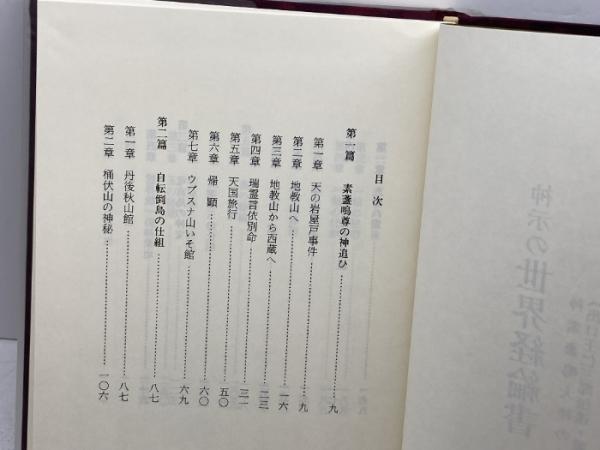 目次
第一篇 素盞嗚尊の神追ひ………………九
第一章 天の岩屋戸事件………………九
第二章 地教山へ………………一六
第三章 地教山から西蔵へ………………二三
第四章 瑞霊言依別命………………三一
第五章 天国旅行………………五〇
第六章 帰顕………………六〇
第七章 ウブスナ山いそ館………………六九
第二篇 自転倒島の仕組………………八七
第一章 丹後秋山館………………八七
第二章 桶伏山の神秘………………一〇六
神示の世界経綸書